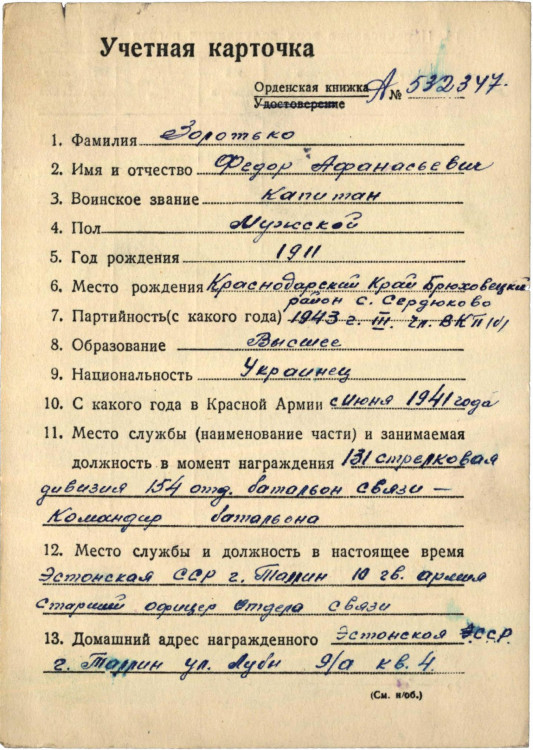 Учетная карточка
Орденская книжка А № 532347.
Удостоверение
1. Фамилия Золотько
2. Имя и отчество Федор Афанасьевич
3. Воинское звание Капитан
4. Пол Мужской
5. Год рождения 1911
6. Место рождения Краснодарский Край Брюховецкий
район с. Сердюково
7. Партийность(с какого года) 1943 г. III. чл. ВКП(б)
8. Образование Высшее
9. Национальность Украинец
10. С какого года в Красной Армии с Июня 1941 года
11. Место службы (наименование части) и занимаемая
должность в момент награждения 131 стрелковая
дивизия 154 отд. батальон связи –
Командир батальона
12. Место службы и должность в настоящее время
Эстонская ССР г. Таллин 10 гв. армия
Старший офицер Отдела связи
13. Домашний адрес награжденного Эстонская ССР.
г. Таллин ул. 9/а кв. 4
(См. н/об.)